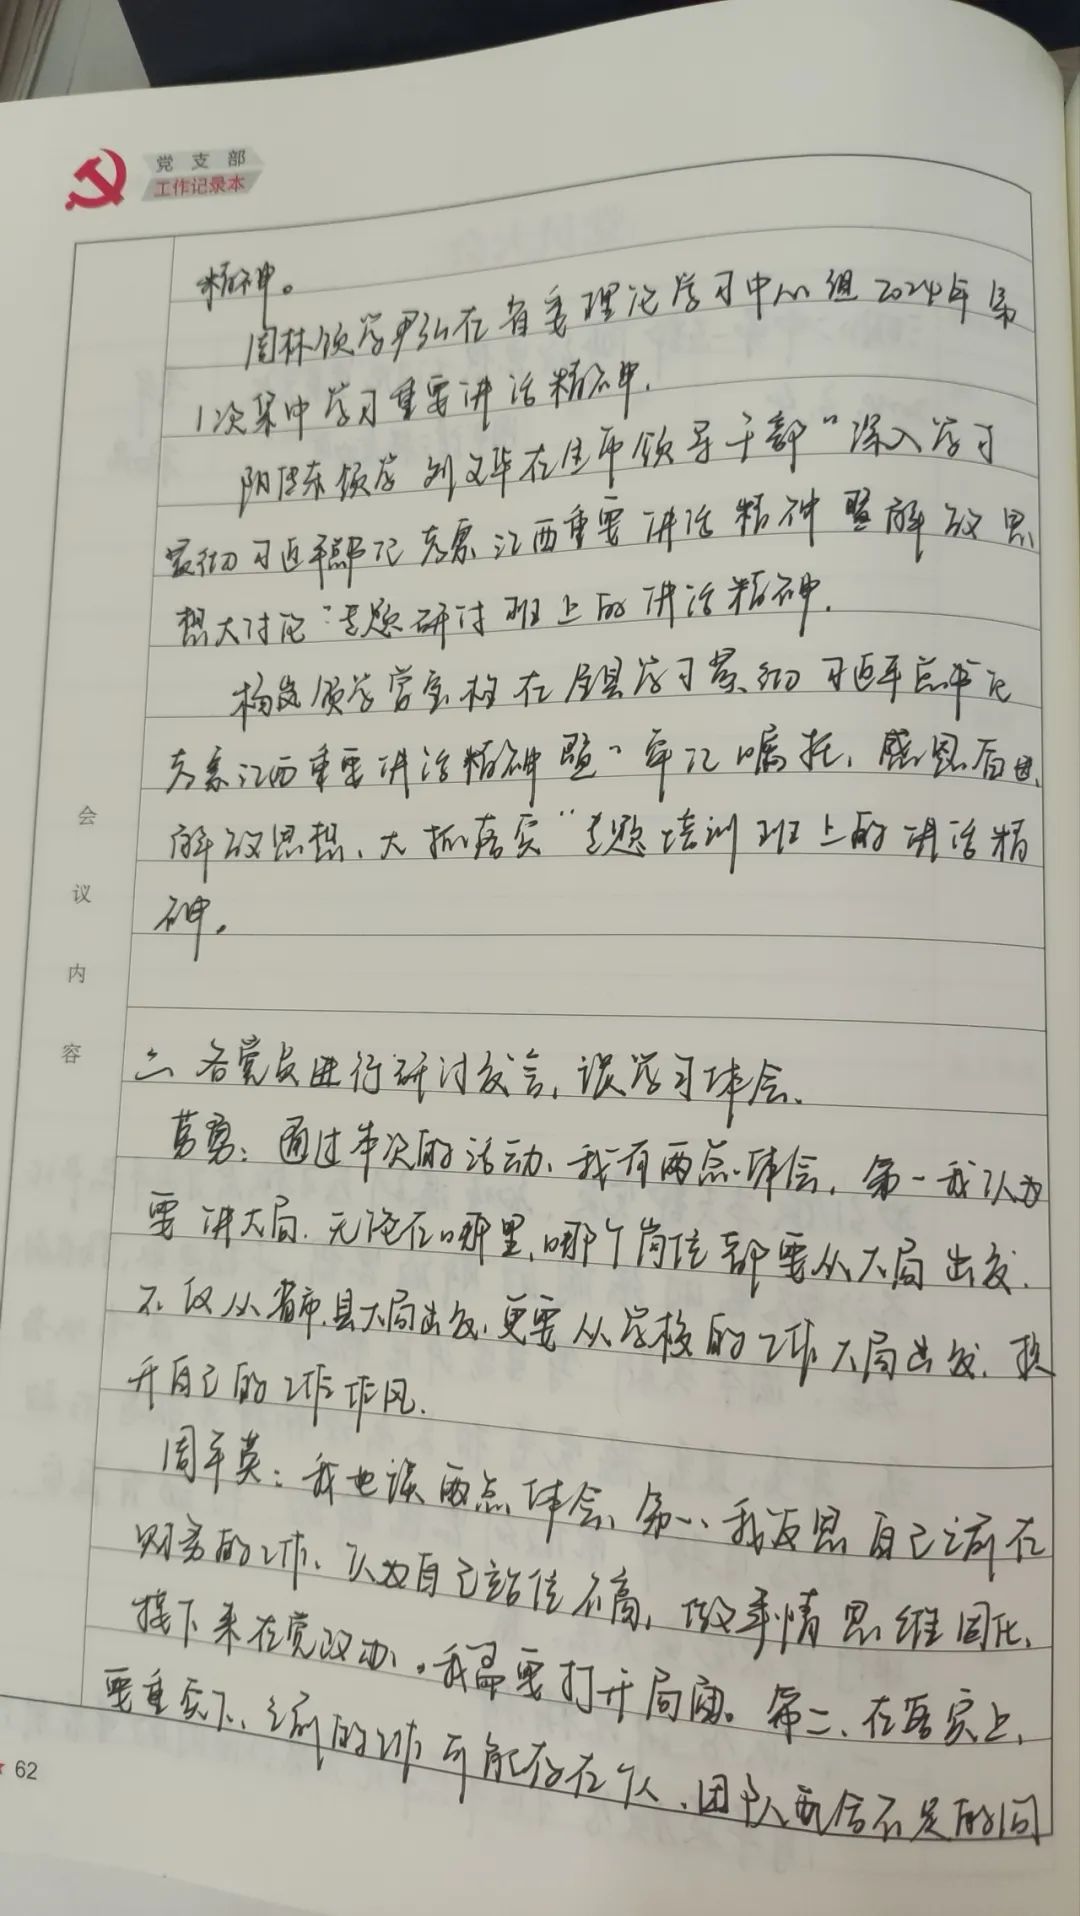 党支部
工作记录本
精神。
周林领学尹弘在省委理论学习中心组2024年第
1次集中学习重要讲话精神.
领学刘文华在全市领导干部“深入学习
贯彻习近平总书记考察江西重要讲话精神暨解放思
想大讨论”专题研讨班上的讲话精神.
杨岚领学在全县学习贯彻习近平总书记
考察江西重要讲话精神暨“牢记嘱托、感恩奋进、
解放思想、大抓落实”专题培训班上的讲话精
神.
会议内容
二、各党员进行研讨发言,谈学习体会.
勇:通过本次的活动、我有两点体会,第一我认为
要讲大局.无论在哪里,哪个岗位都要从大局出发.
不仅从省市.县大局出发.更要从学校的工作大局出发.提
升自己的工作作风.
周平英:我也谈两点体会、第一、我反思自己之前在
财务的工作、认为自己站位不高,做事情思维固化,
接下来在党政办、我需要打开局面。第二、在落实上,
要重实下、之前的工作可能存在个人、团队配合不足的问
62